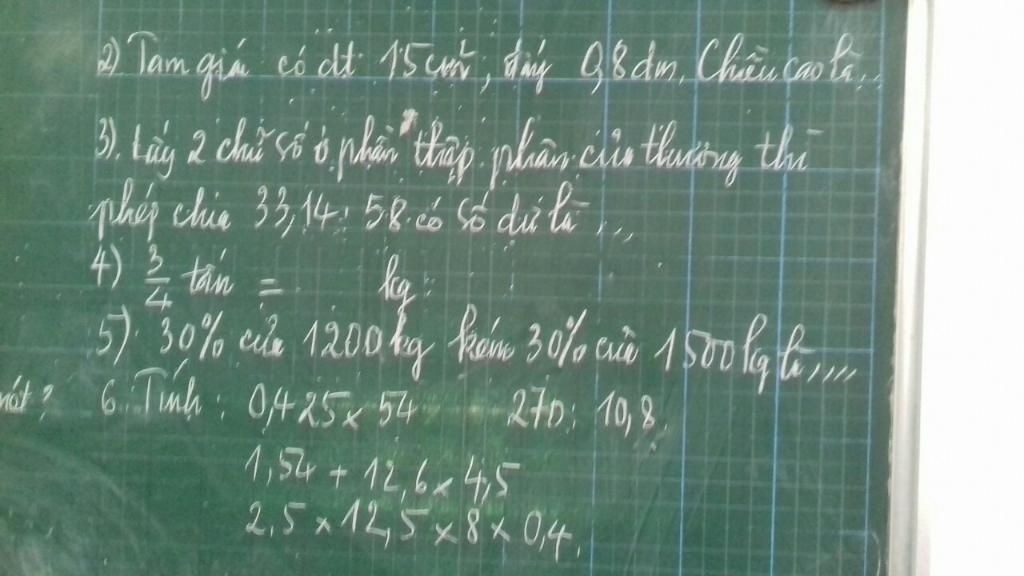 2) Tam giác có dt 15cm², đáy 0,8dm. Chiều cao là...
3). Lấy 2 chữ số ở phần thập phân của thương thì
phép chia 33,14 : 58 có số dư là ...
4) 3/4 tấn = kg.
5). 30% của 1200kg kém 30% của 1500kg là....
6. Tính : 0,425 x 54 270 : 10,8
1,54 + 12,6 x 4,5
2,5 x 12,5 x 8 x 0,4.